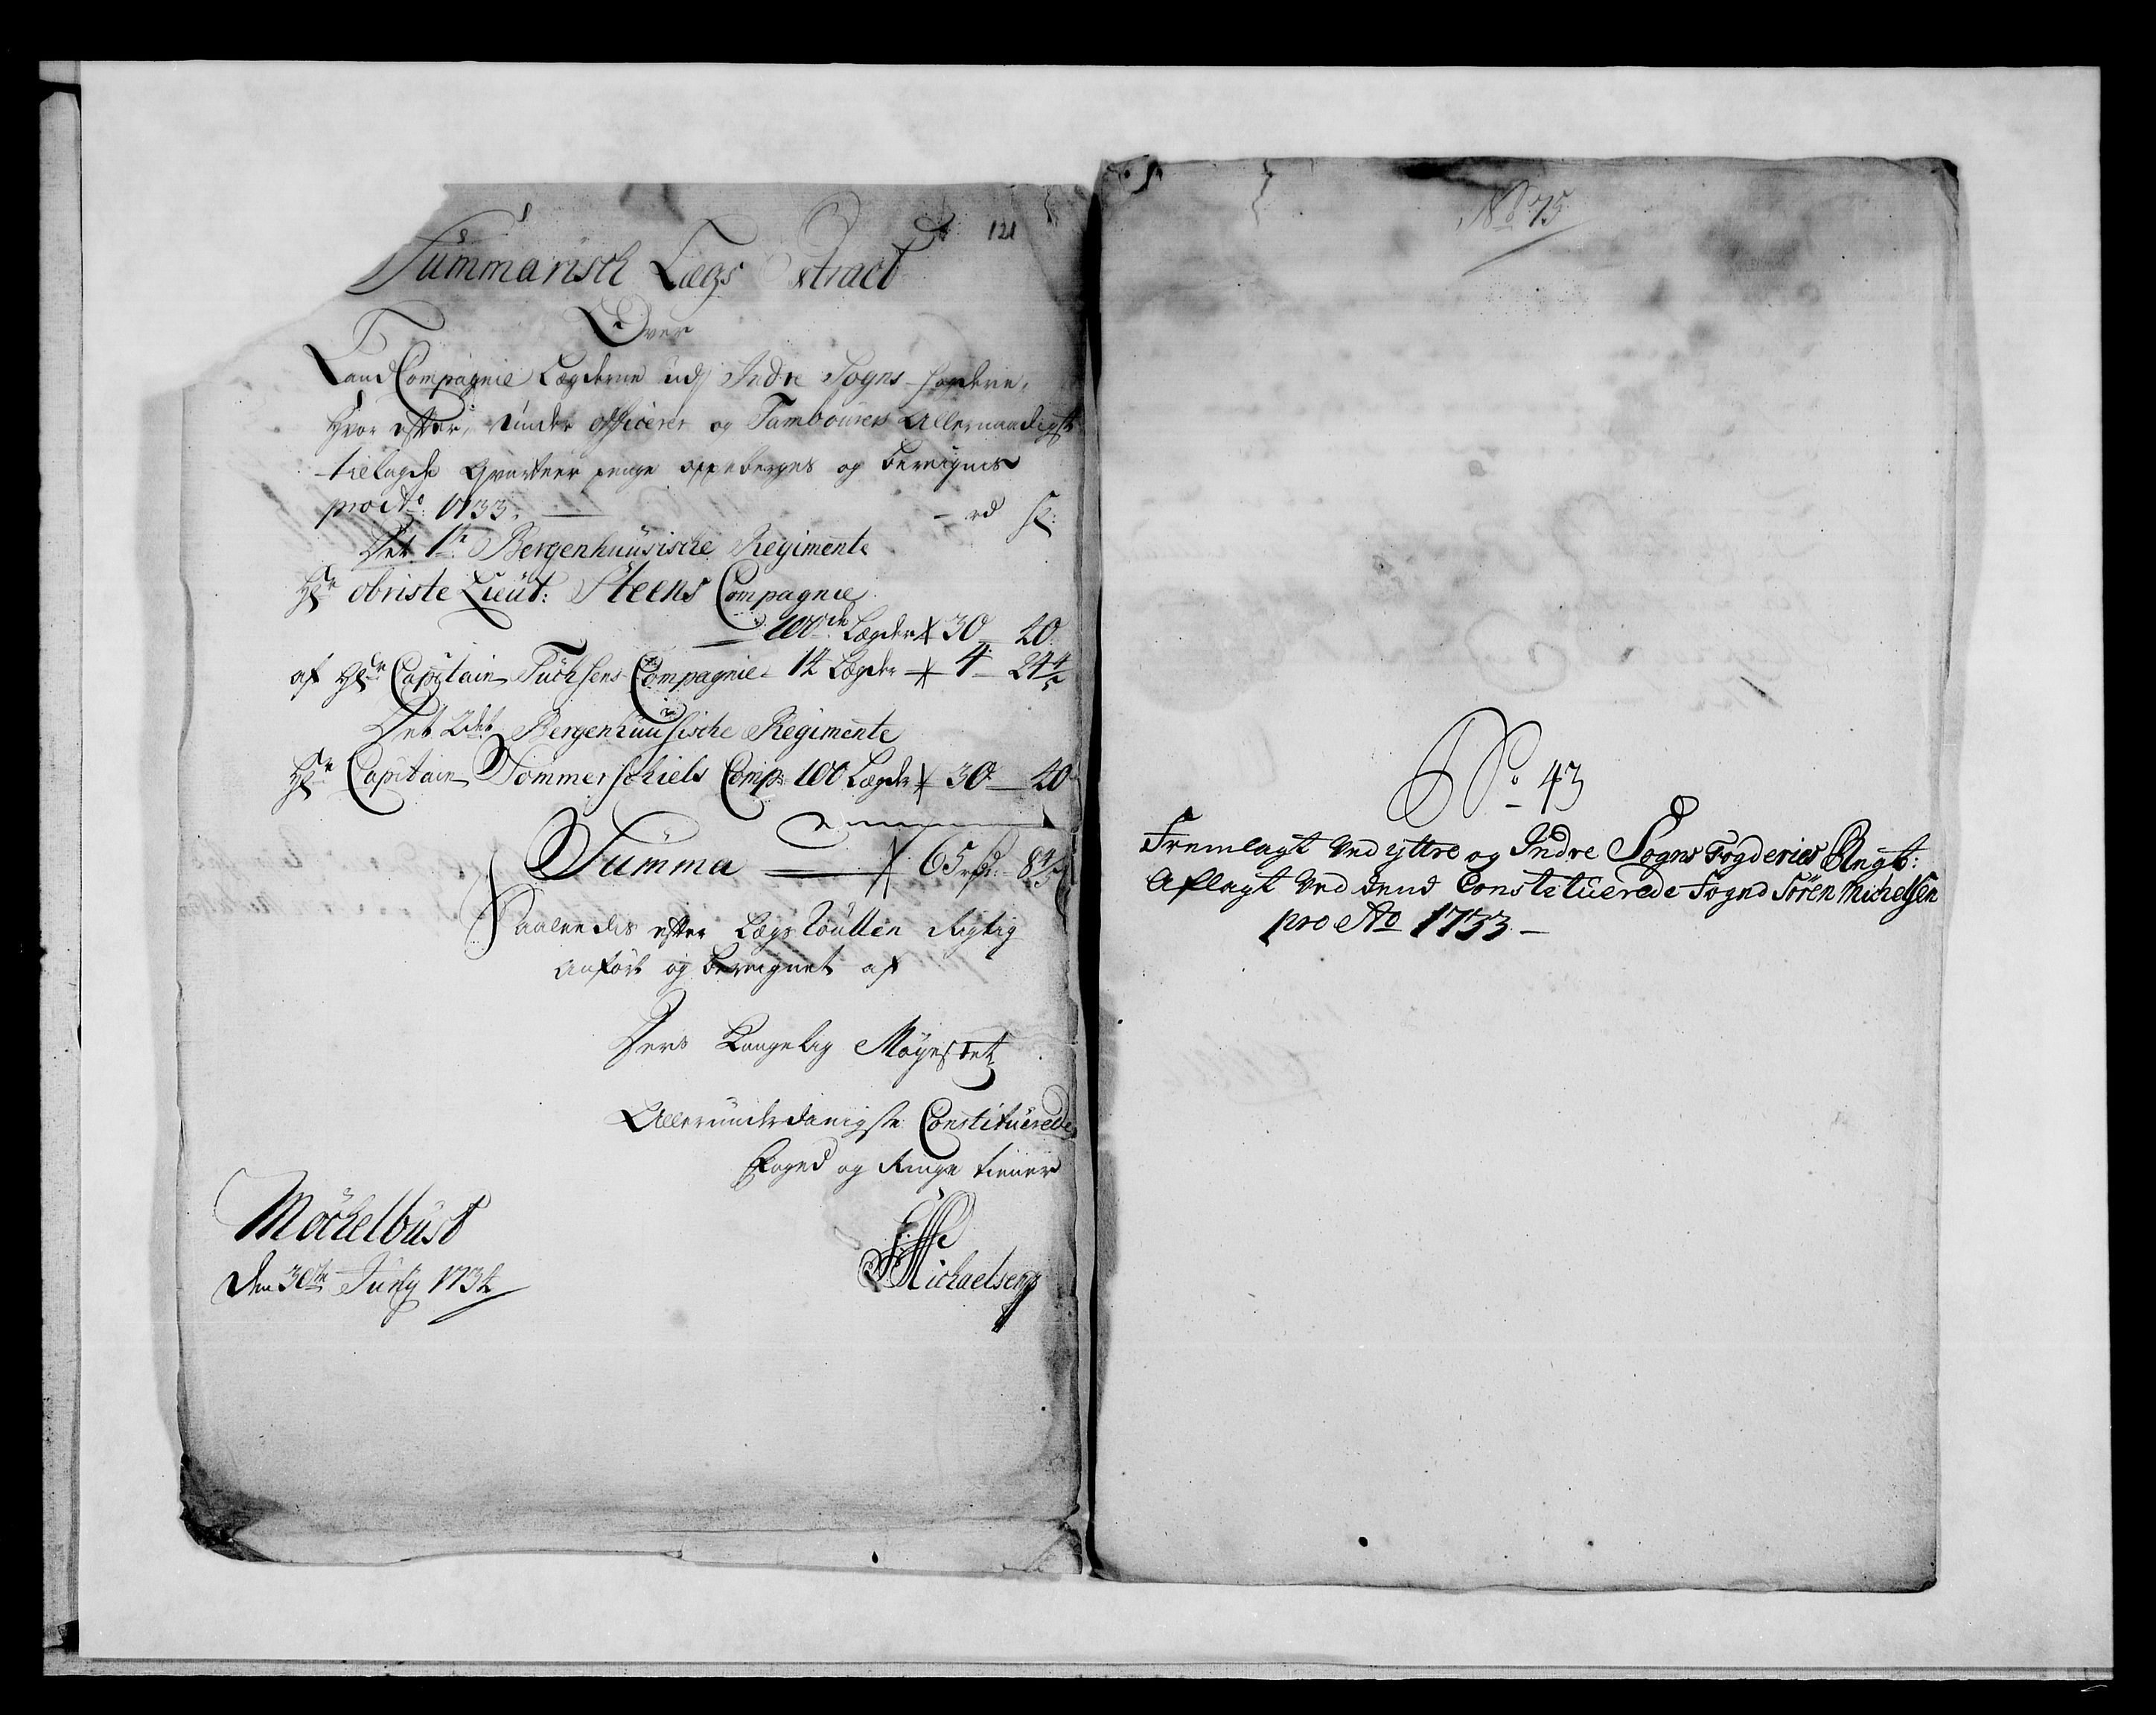 121
Summarisch Lægs Extract
Over
Land Compagnie Lægderne udj Indre Sogns-fogderie,
Hvor efter, Under officerer og Tambourers Allernaadigst
tillagde Qvarteer penge oppeberges og bereignes
pro Ao: 1733. — rd ß:
Det 1te Bergenhuusische Regimente
Hr obriste Lieut: Steens Compagnie
100de Lægder 30 — 40
af Hr Capitain Füchsens Compagnie 14 Lægder 4 — 24 4/5
Det 2det Bergenhuusische Regimente
Hr Capitain Sommerschiels Comp: 100 Lægder 30 — 40
Summa — 65 rd: 8 4/5 ß
Saaledis efter Lægs Roullen Rigtig
anført og bereignet af
Ders Kongelig Mayestet
Allerunderdanigste Constituerede
Foged og Ringe tiener
Möchelbust
den 30te Junij 1734
S Michaelsen
No 75
No 43
Fremlagt Ved yttre og Indre Sogns Fogderies Regt:
Aflagt Ved dend Constetuerede Foged Sören Michelsen
pro Ao 1733 —